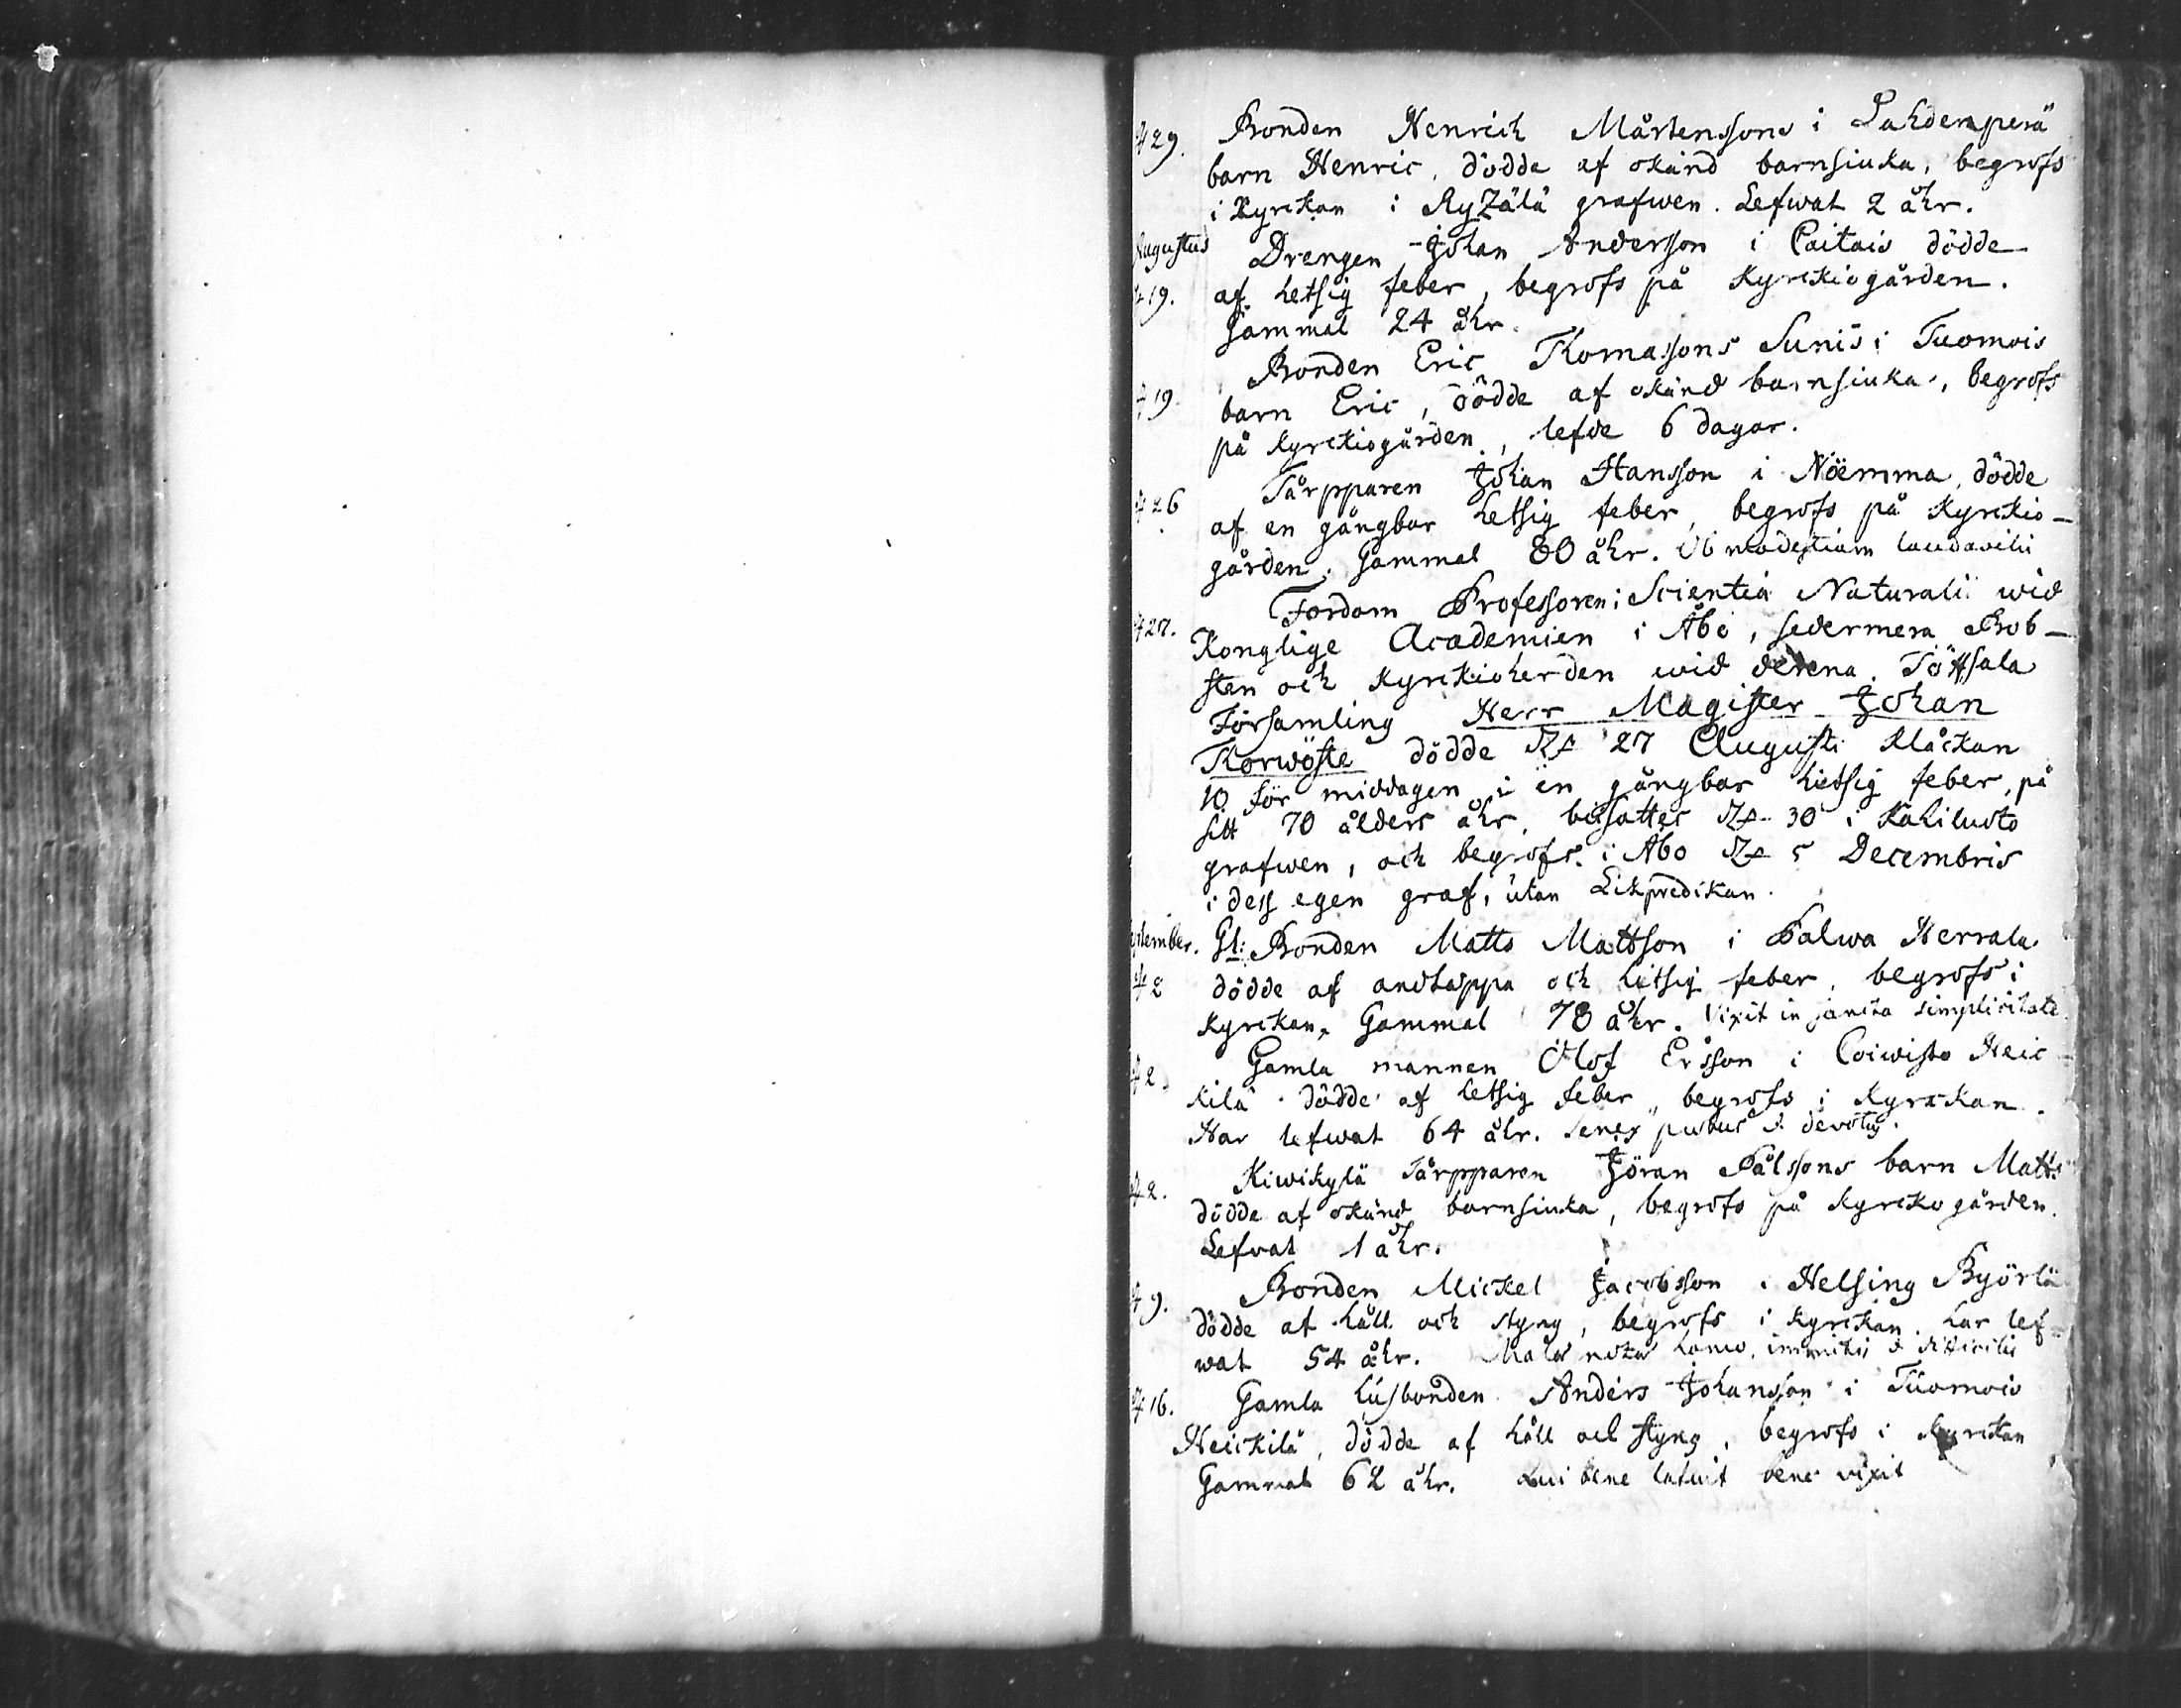 29. Bonden Henrich Mårtenssons i Lahdenperä
barn Henric, dödde af okänd barnsiuka, begrofs
i Kyrckan i Ryzälä grafwen. Lefwat 2 åhr.
Augustus Drengen Johan Andersson i Caitais dödde
19. af hetsig feber, begrofs på Kyrckiogården.
Gammal 24 åhr.
Bonden Eric Thomassons Sunis i Tuomois
19. barn Eric, dödde af okänd barnsiuka, begrofs
på Kyrckiogården, lefde 6 dagar.
26 Tårpparen Johan Hansson i Nöemma, dödde
af en gångbar hetsig feber, begrofs på Kyrckio-
gården. Gammal 80 åhr. Ob modestiam
Fordom Professoren i Scientia Naturali wid
27. Konglige Academien i Åbo, sedermera Prob-
sten och Kyrckioherden wid denna Töffsala
Församling Herr Magister Johan
Thorwöste dödde 27 Augusti Klåckan
10 för middagen i en gångbar hetsig feber, på
sitt 70 ålders åhr, bisattes 30 i Kahiluoto
grafwen, och begrofs i Åbo 5 Decembris
i dess egen graf, utan Likpredikan.
September. Gl: Bonden Matts Mattson i Palwa Herrala
2 dödde af andtäppa och hetsig feber, begrofs i
Kyrckan, Gammal 78 åhr. Vixit in sancta simplicitate
2. Gamla mannen Olof Ersson i Coiwisto Heic
kilä dödde af hetsig feber, begrofs i Kyrckan.
Har lefwat 64 åhr. Senex probus & devotus.
2. Kiwikylä Tårpparen Jöran Pålssons barn Matts
dödde af okänd barnsiuka, begrofs på Kyrckogården.
Lefwat 1 åhr.
9. Bonden Mickel Jacobsson i Helsing Byörlä
dödde af håll och styng, begrofs i Kyrckan, har lef-
wat 54 åhr. Mala nota homo, immitis & difficilis
16. Gamla husbonden Anders Johansson i Tuomois
Heickilä, dödde af håll och styng, begrofs i Kyrckan
Gammal 62 åhr. Qui bene latuit bene vixit